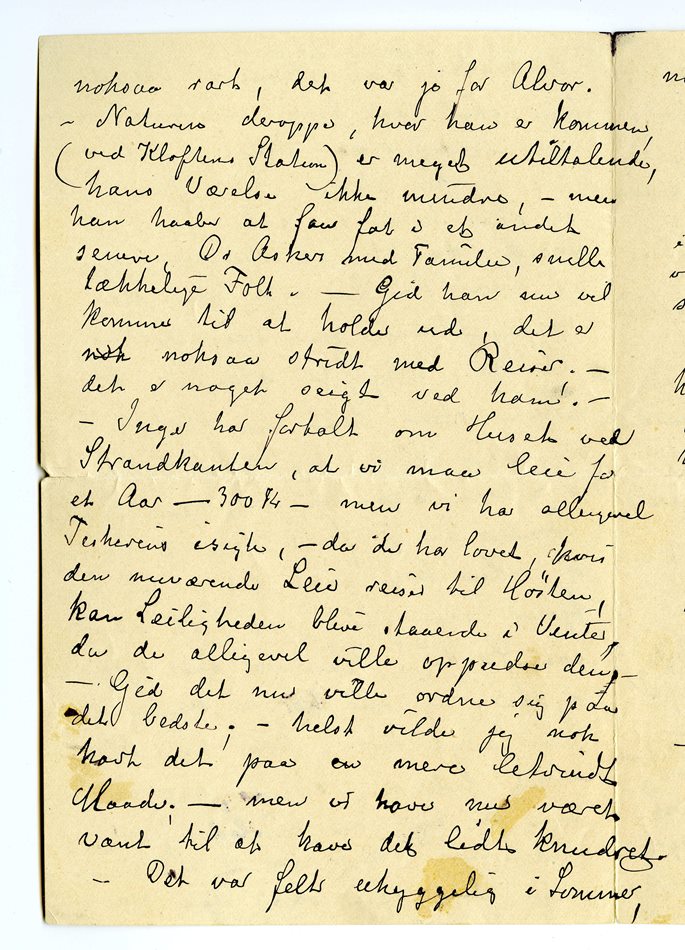 noksaa rart, det var jo for Alvor.
– Naturen deroppe, hvor han er kommen,
(ved Kløftens Station) er meget utiltalende,
hans Værelse ikke mindre, – men
han haaber at faa fat i et andet
senere, Dr Askers med Familie, snille
tækkelige Folk. – Gid han nu vil
komme til at holde ud, det er
nok noksaa stridt med Reiser. –
det er noget seigt ved ham! –
– Inger har fortalt om Huset ved
Strandkanten, at vi maa leie for
et Aar – 300 Kr – men vi har alligevel
isigte, – da de har lovet, hvis
den nuværende Leier reiser til Høsten,
kan Leiligheden blive staaende i Vinter,
da de alligevel ville oppudse den, –
– Gid det nu ville ordne sig paa
det bedste; – helst vilde jeg nok
havt det paa en mere letvindt
Maade; – men vi have nu været
vant til at have det lidt knudret.
– Det var felt uhyggelig i Sommer,